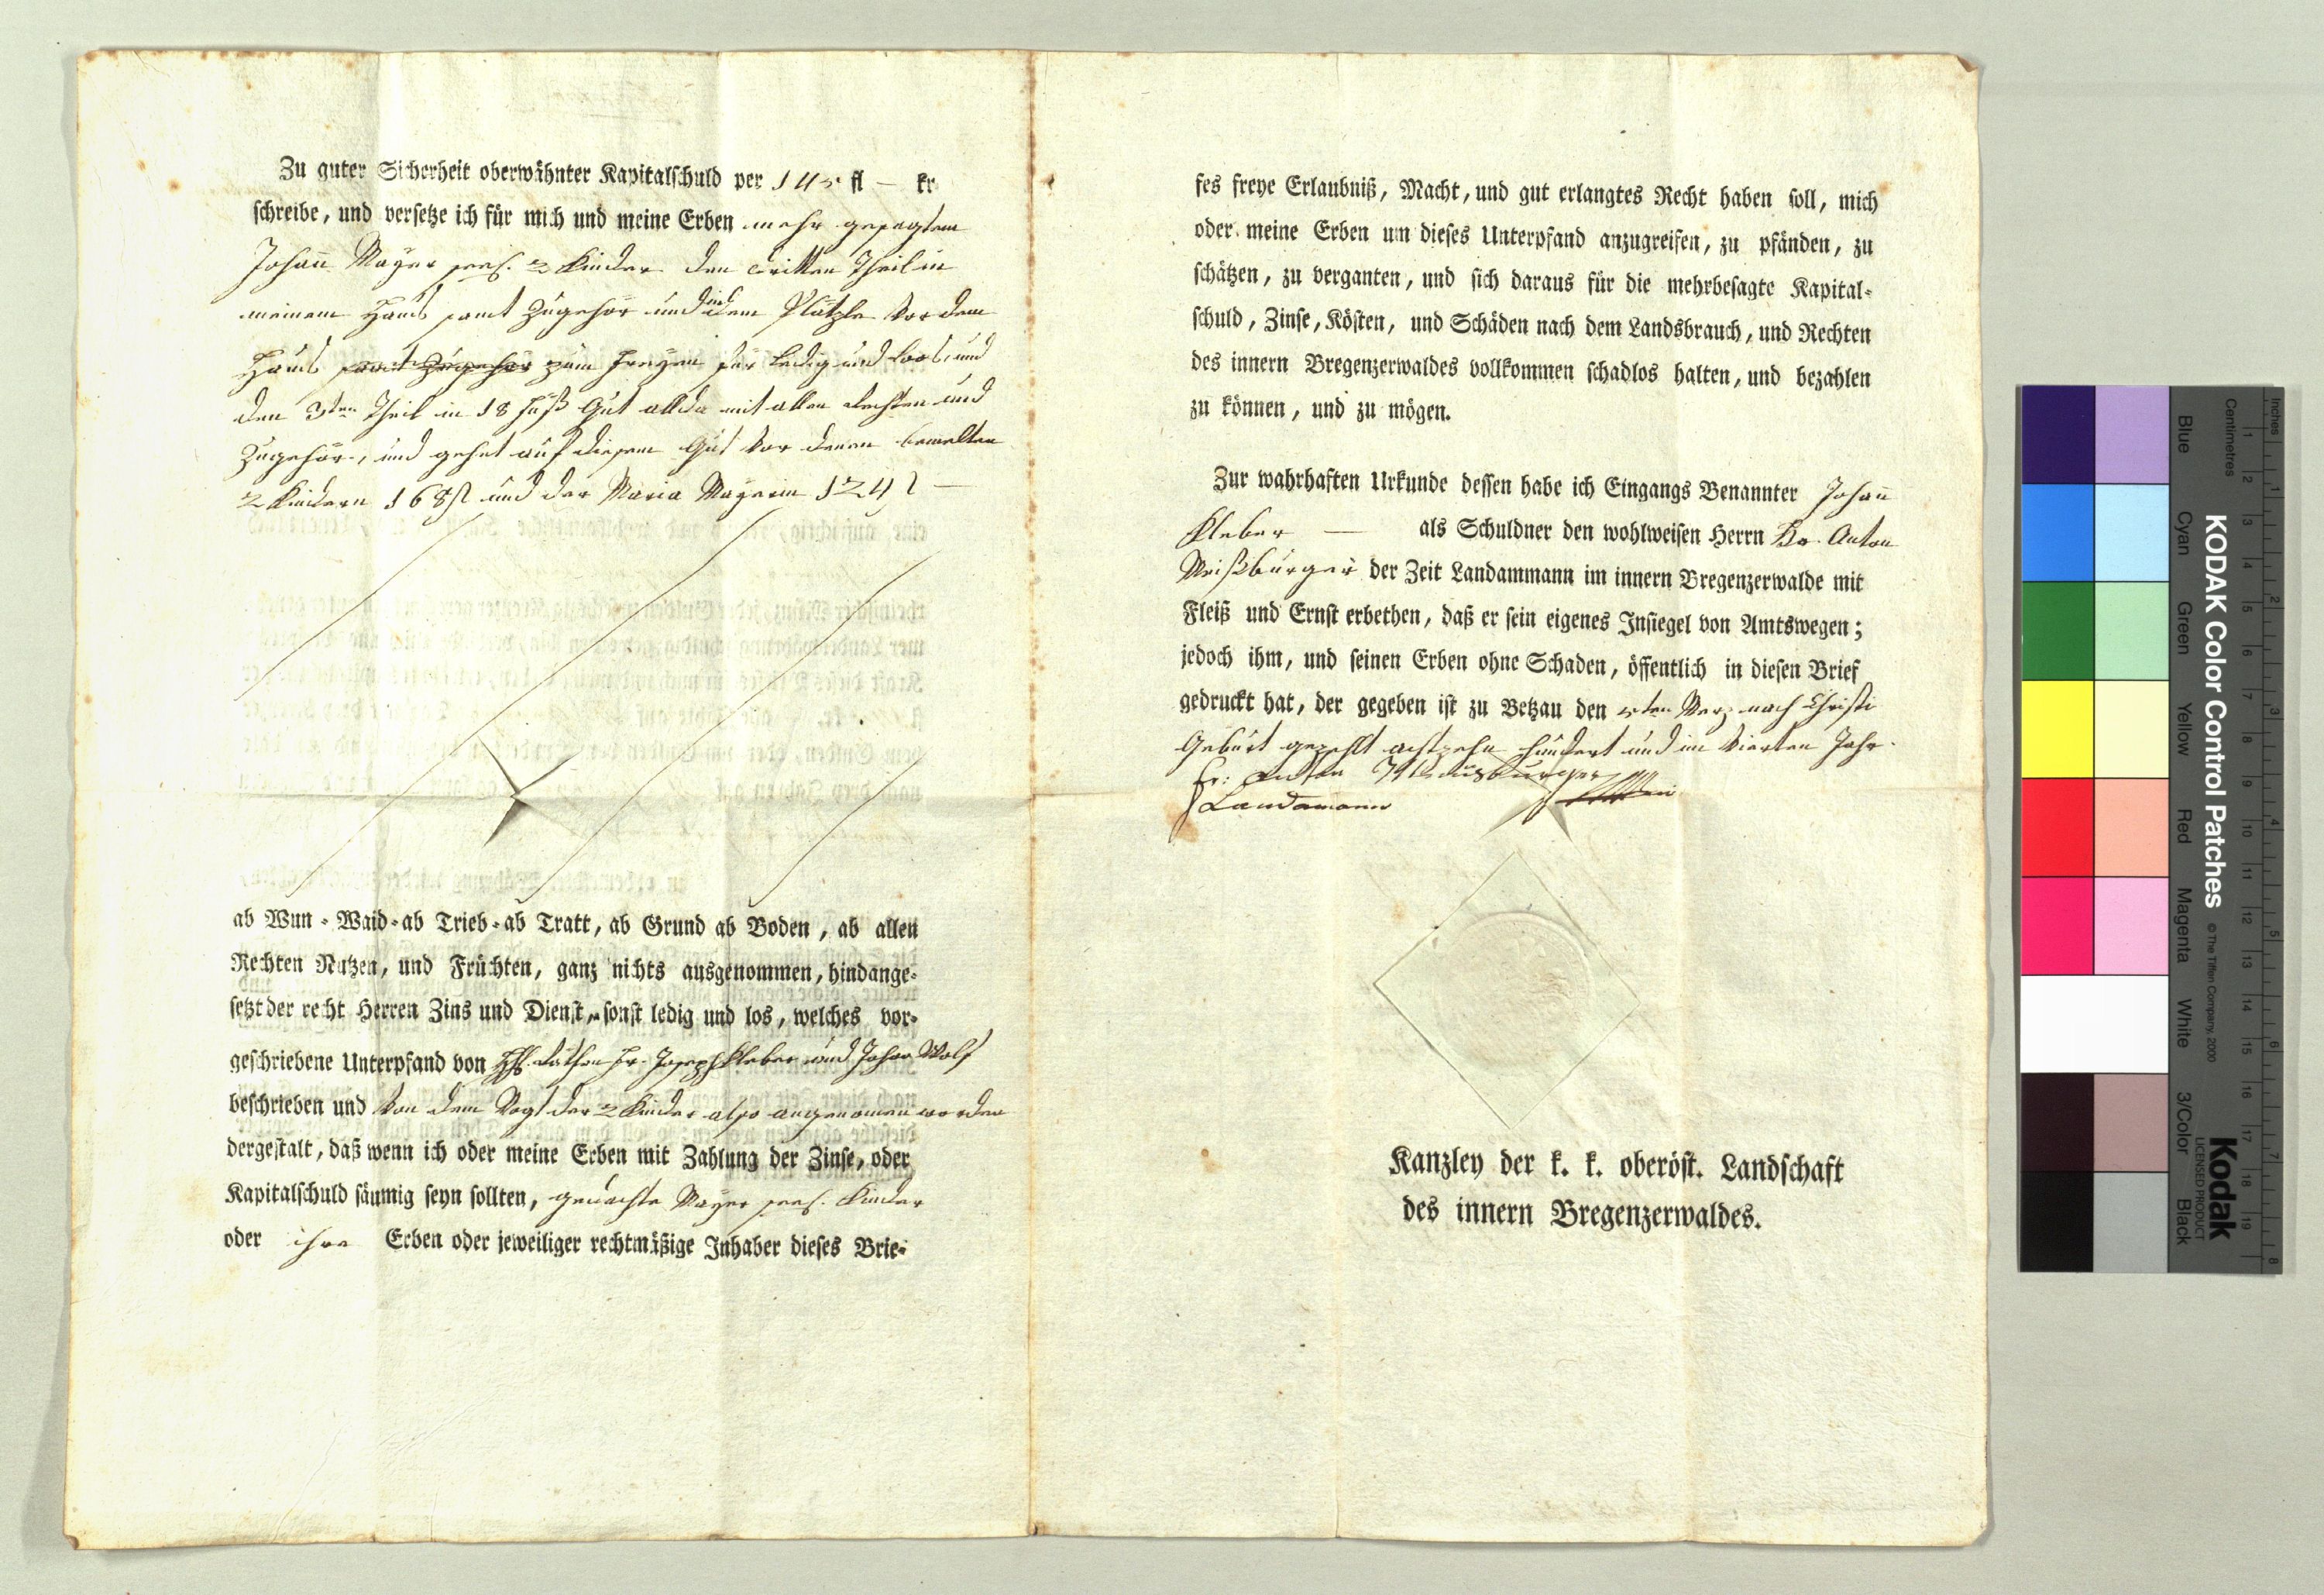 Zu guter Sicherheit oberwähnter Kapitalschuld per 145 fl — kr
schreibe, und versetze ich für mich und meine Erben mehr gesagtem
Johañ Mayer seel. 2 Kinder den dritten Theil in
meinem Haus samt Zugehör und in dem Plätzle vor dem
Haus samt Zugehör zum freyen für ledig und loos, und
den 3ten Theil in 18 Fuß Gut allda mit allen Rechten und
Zugehör, und gehet auf diesem Gut vor denen bemelten
2 Kindern 168 fl und der Maria Mayerin 124 f —
ab Wun-Waid-ab Trieb-ab Tratt, ab Grund ab Boden, ab allen
Rechten Nutzen, und Früchten, ganz nichts ausgenommen, hindange-
setzt der recht Herren Zins und Dienst, sonst ledig und los, welches vor-
geschriebene Unterpfand von Räthen Hr. Joseph Kleber und Johan Wolf
beschrieben und von dem Vogt der 2 Kinder also angenomen worden
dergestalt, daß wenn ich oder meine Erben mit Zahlung der Zinse, oder
Kapitalschuld säumig seyn sollten, gedachte Mayer seel. Kinder
oder ihre Erben oder jeweiliger rechtmäßige Inhaber dieses Brie-
fes freye Erlaubniß, Macht, und gut erlangtes Recht haben soll, mich
oder meine Erben um dieses Unterpfand anzugreifen, zu pfänden, zu
schätzen, zu verganten, und sich daraus für die mehrbesagte Kapital-
schuld, Zinse, Kösten, und Schäden nach dem Landsbrauch, und Rechten
des innern Bregenzerwaldes vollkommen schadlos halten, und bezahlen
zu können, und zu mögen.
Zur wahrhaften Urkunde dessen habe ich Eingangs Benannter Johañ
Kleber — als Schuldner den wohlweisen Herrn Anton
der Zeit Landammann im innern Bregenzerwalde mit
Fleiß und Ernst erbethen, daß er sein eigenes Insiegel von Amtswegen;
jedoch ihm, und seinen Erben ohne Schaden, öffentlich in diesen Brief
gedruckt hat, der gegeben ist zu Betzau den 5ten Merz nach Christi
Geburt gezehlt achtzehn hundert und im vierten Jahr.
Landamann
Kanzley der k. k. oberöst. Landschaft
des innern Bregenzerwaldes.
KODAK Color Control Patches
© The Tiffen Company, 2000
Kodak
LICENSED PRODUCT
Inches
Centimetres
Blue Cyan Green Yellow Red Magenta White 3/Color Black